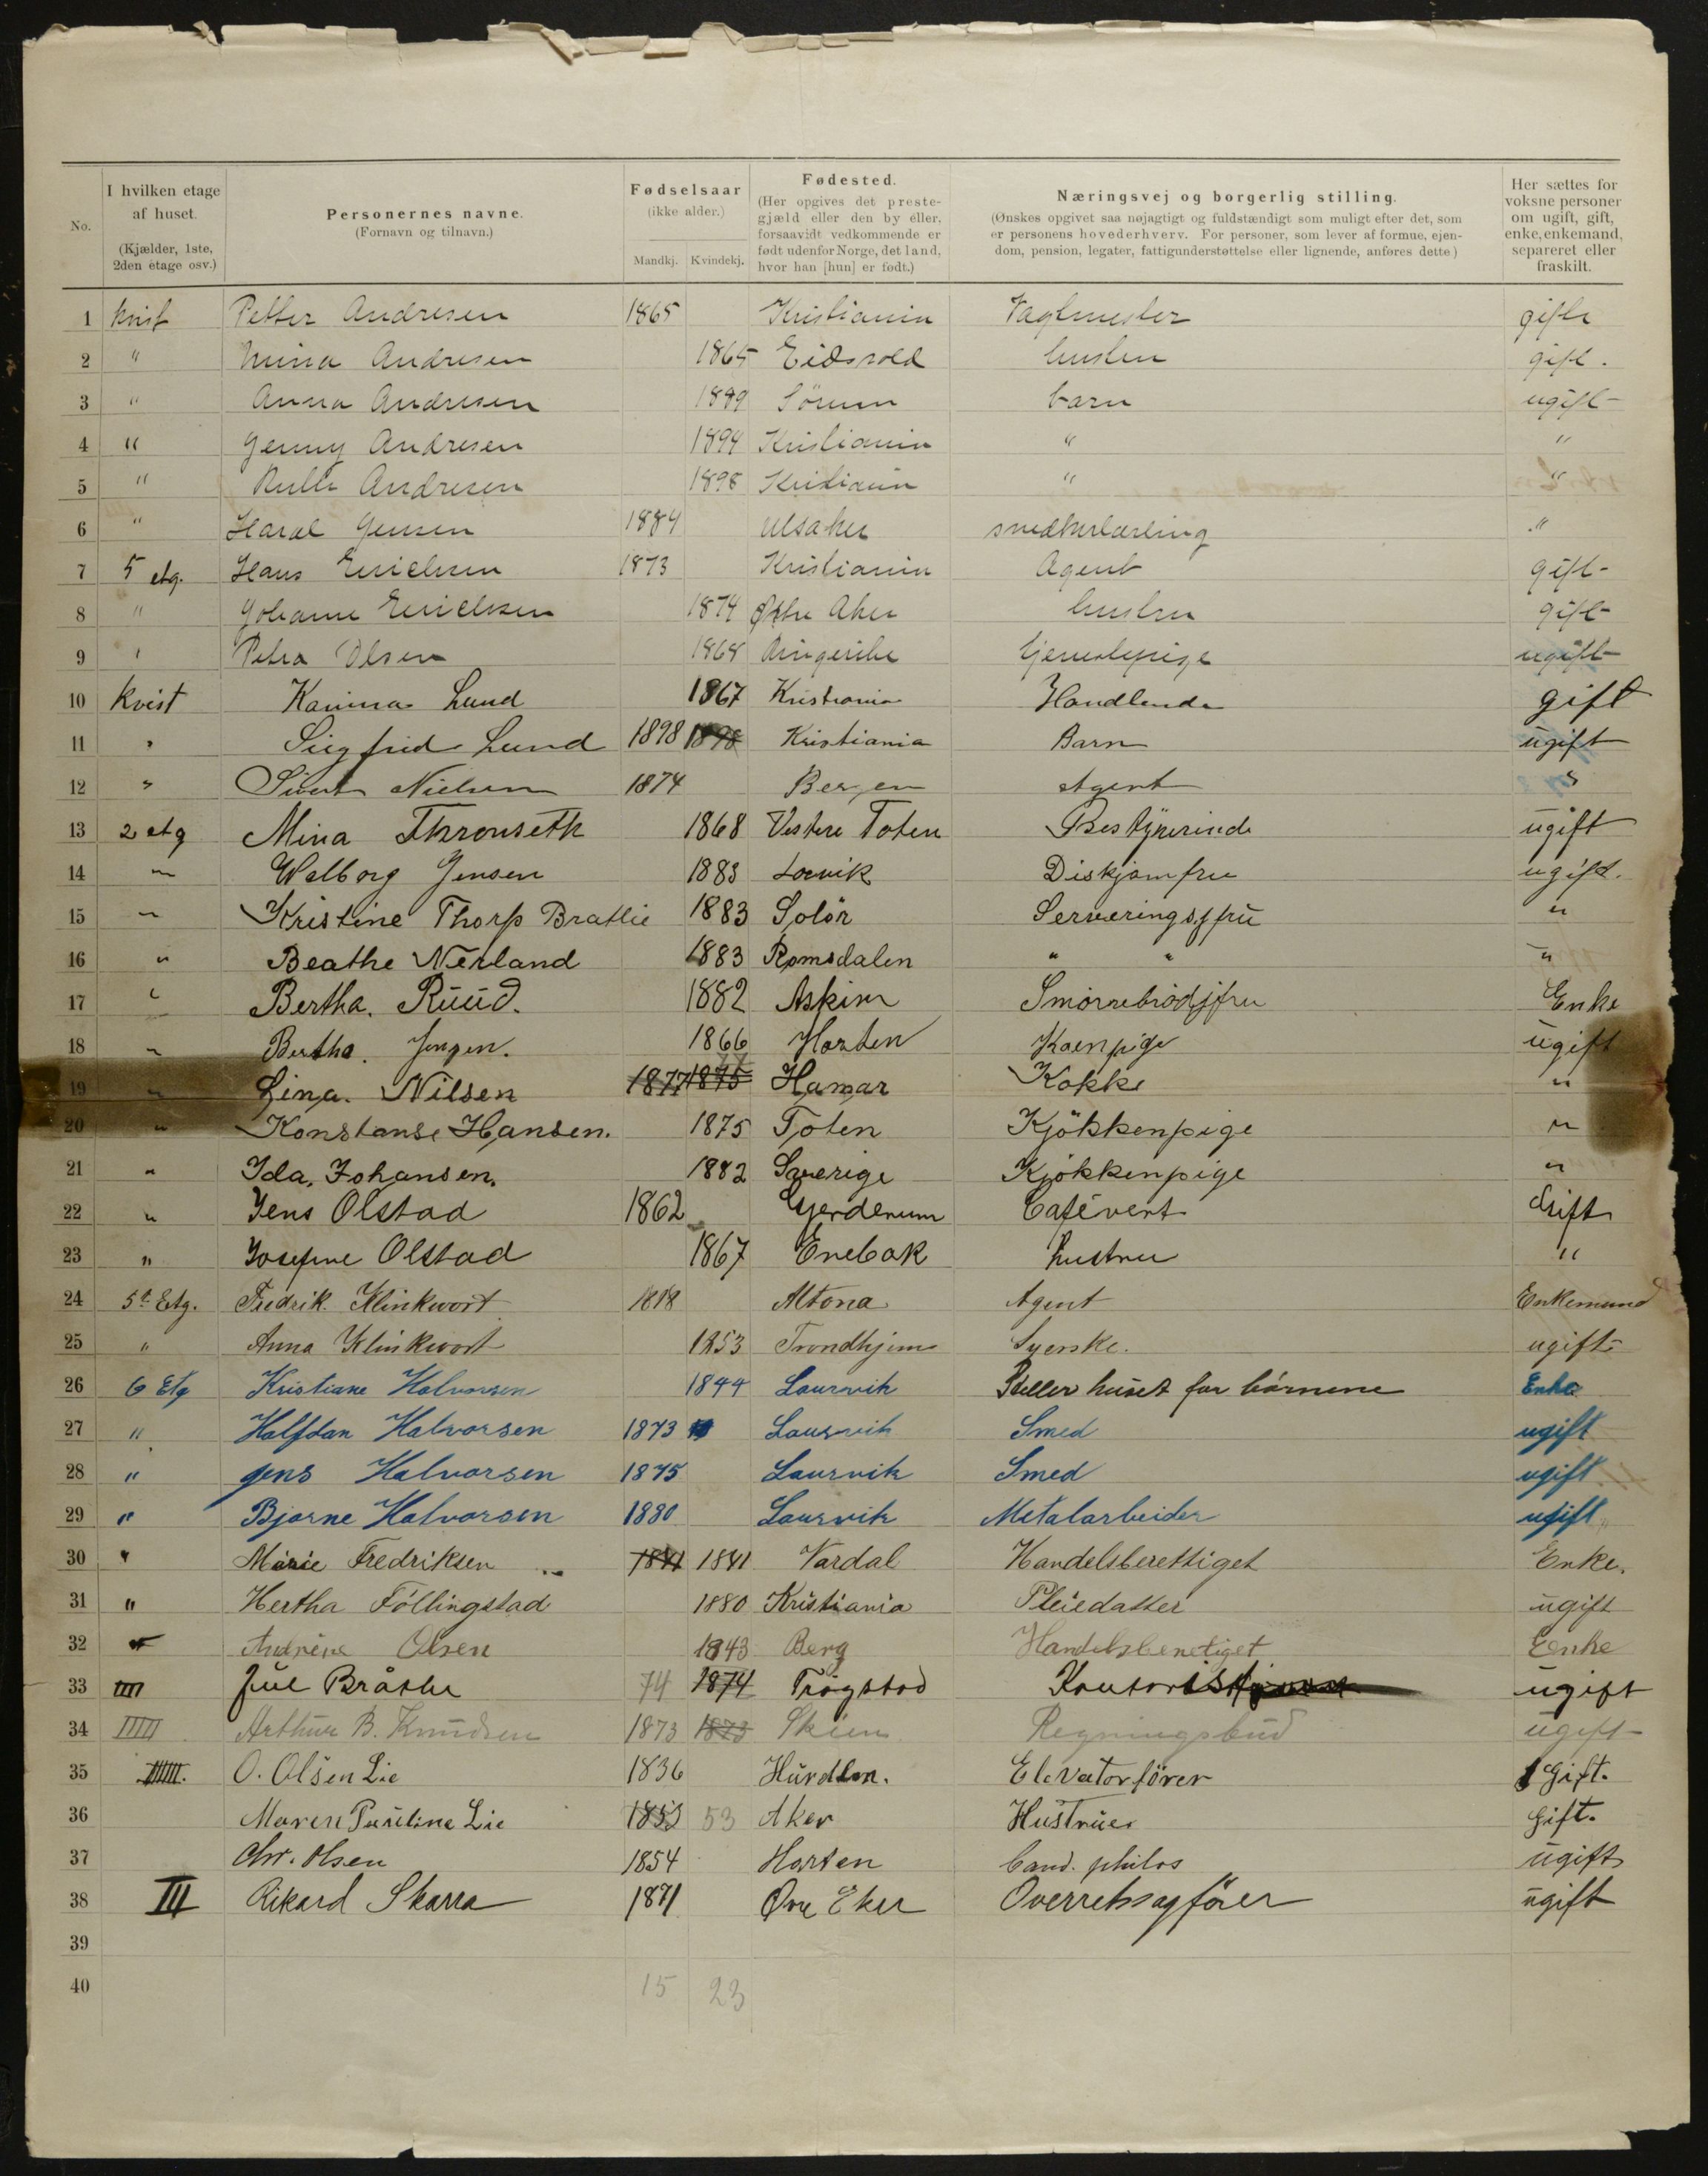 No.
I hvilken etage af huset. (Kjælder, 1ste, 2den etage osv.)
Personernes navne. (Fornavn og tilnavn.)
Fødselsaar (ikke alder.)
Mandkj. Kvindekj.
Fødested. (Her opgives det prestegjæld eller den by eller, forsaavidt vedkommende er født udenfor Norge, det land, hvor han [hun] er født.)
Næringsvej og borgerlig stilling. (Ønskes opgivet saa nøjagtigt og fuldstændigt som muligt efter det, som er personens hovederhverv. For personer, som lever af formue, ejendom, pension, legater, fattigunderstøttelse eller lignende, anføres dette)
Her sættes for voksne personer om ugift, gift, enke, enkemand, separeret eller fraskilt.
1 kvist Petter Andresen 1865 Kristiania Vagtmester gift
2 " Mina Andresen 1865 Eidsvold hustru gift.
3 " Anna Andresen 1889 Sørum barn ugift
4 " Jenny Andresen 1894 Kristiania " "
5 " Ruth Andresen 1898 Kristiania " "
6 " Haral Jensen 1884 Ulsaker snedkerlærling "
7 5 etg. Hans Erichsen 1873 Kristiania Agent gift
8 " Johanne Erichsen 1874 Østre Aker hustru gift
9 " Petra Olsen 1868 Ringerike tjenestepige ugift
10 kvist Kamma Lund 1867 Kristiania Handlende gift
11 " Siegfried Lund 1898 1898 Kristiania Barn ugift
12 " Sivert Nielsen 1874 Bergen Agent "
13 2 etg Mina Thronseth 1868 Vestere Toten Bestÿrerinde ugift
14 " Walborg Jensen 1883 Lørvik Diskjomfru ugift.
15 " Kristine Thorp Bratlie 1883 Solör Serveringsjfru "
16 " Beathe Nerland 1883 Romsdalen " " "
17 " Bertha. Ruud. 1882 Askim Smörrebrödjfru Enke
18 " Bertha. Jensen. 1866 Horten Kaenpige ugift
19 " Lina. Nilsen 1877 1875 77 Hamar Kokke "
20 " Konstanse Hansen. 1875 Toten Kjökkenpige "
21 " Ida. Johansen. 1882 Sverige Kjökkenpige "
22 " Jens Olstad 1862 Gjerderum Cafévert Gift
23 " Josefine Olstad 1867 Enebak hustru "
24 5te Etg. Fredrik Klinkwort 1818 Altona Agent Enkemand
25 " Anna Klinkwort 1853 Trondhjem Syerske. ugift
26 6 Etg Kristiane Halvorsen 1844 Laurvik Steller huset for börnene Enke
27 " Halfdan Halvorsen 1873 Laurvik Smed ugift
28 " Jens Halvorsen 1875 Laurvik Smed ugift
29 " Bjarne Halvorsen 1880 Laurvik Metalarbeider ugift
30 " Marie Fredriksen 1841 1841 Vardal Handelsberettiget Enke.
31 " Hertha Föllingstad 1880 Kristiania Pleiedatter ugift
32 " Andrine Olsen 1843 Berg Handelsberetiget Eenke
33 IIII Jul Bråthe 74 1874 Trögstad Kontorist ugift
34 IIIII Arthur B. Knudsen 1873 1873 Skien Regningsbud ugift
35 IIIIII. O. Olsen Lie 1836 Hurdlen. Elevatorförer Gift.
36 Maren Pauline Lie 1853 53 Aker Hustrue Gift.
37 Chr. Olsen 1854 Horten Cand. philos ugift
38 III Rikard Skarra 1871 Øvre Eker Overretssagförer ugift
39
40 15 23